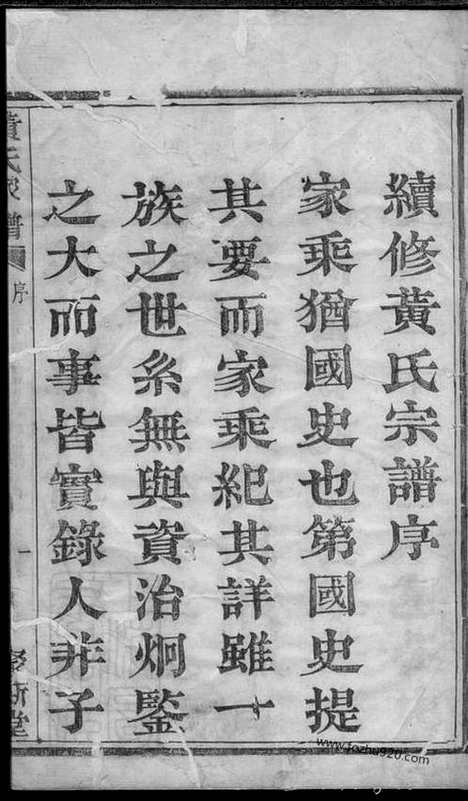 續修黃氏宗譜序
家乘猶國史也第國史提
其要而家乘紀其詳雖一
族之世系無與資治炯鑒
之大而事皆實錄人非子
黃氏家譜
序
一
www.fozhu920.com